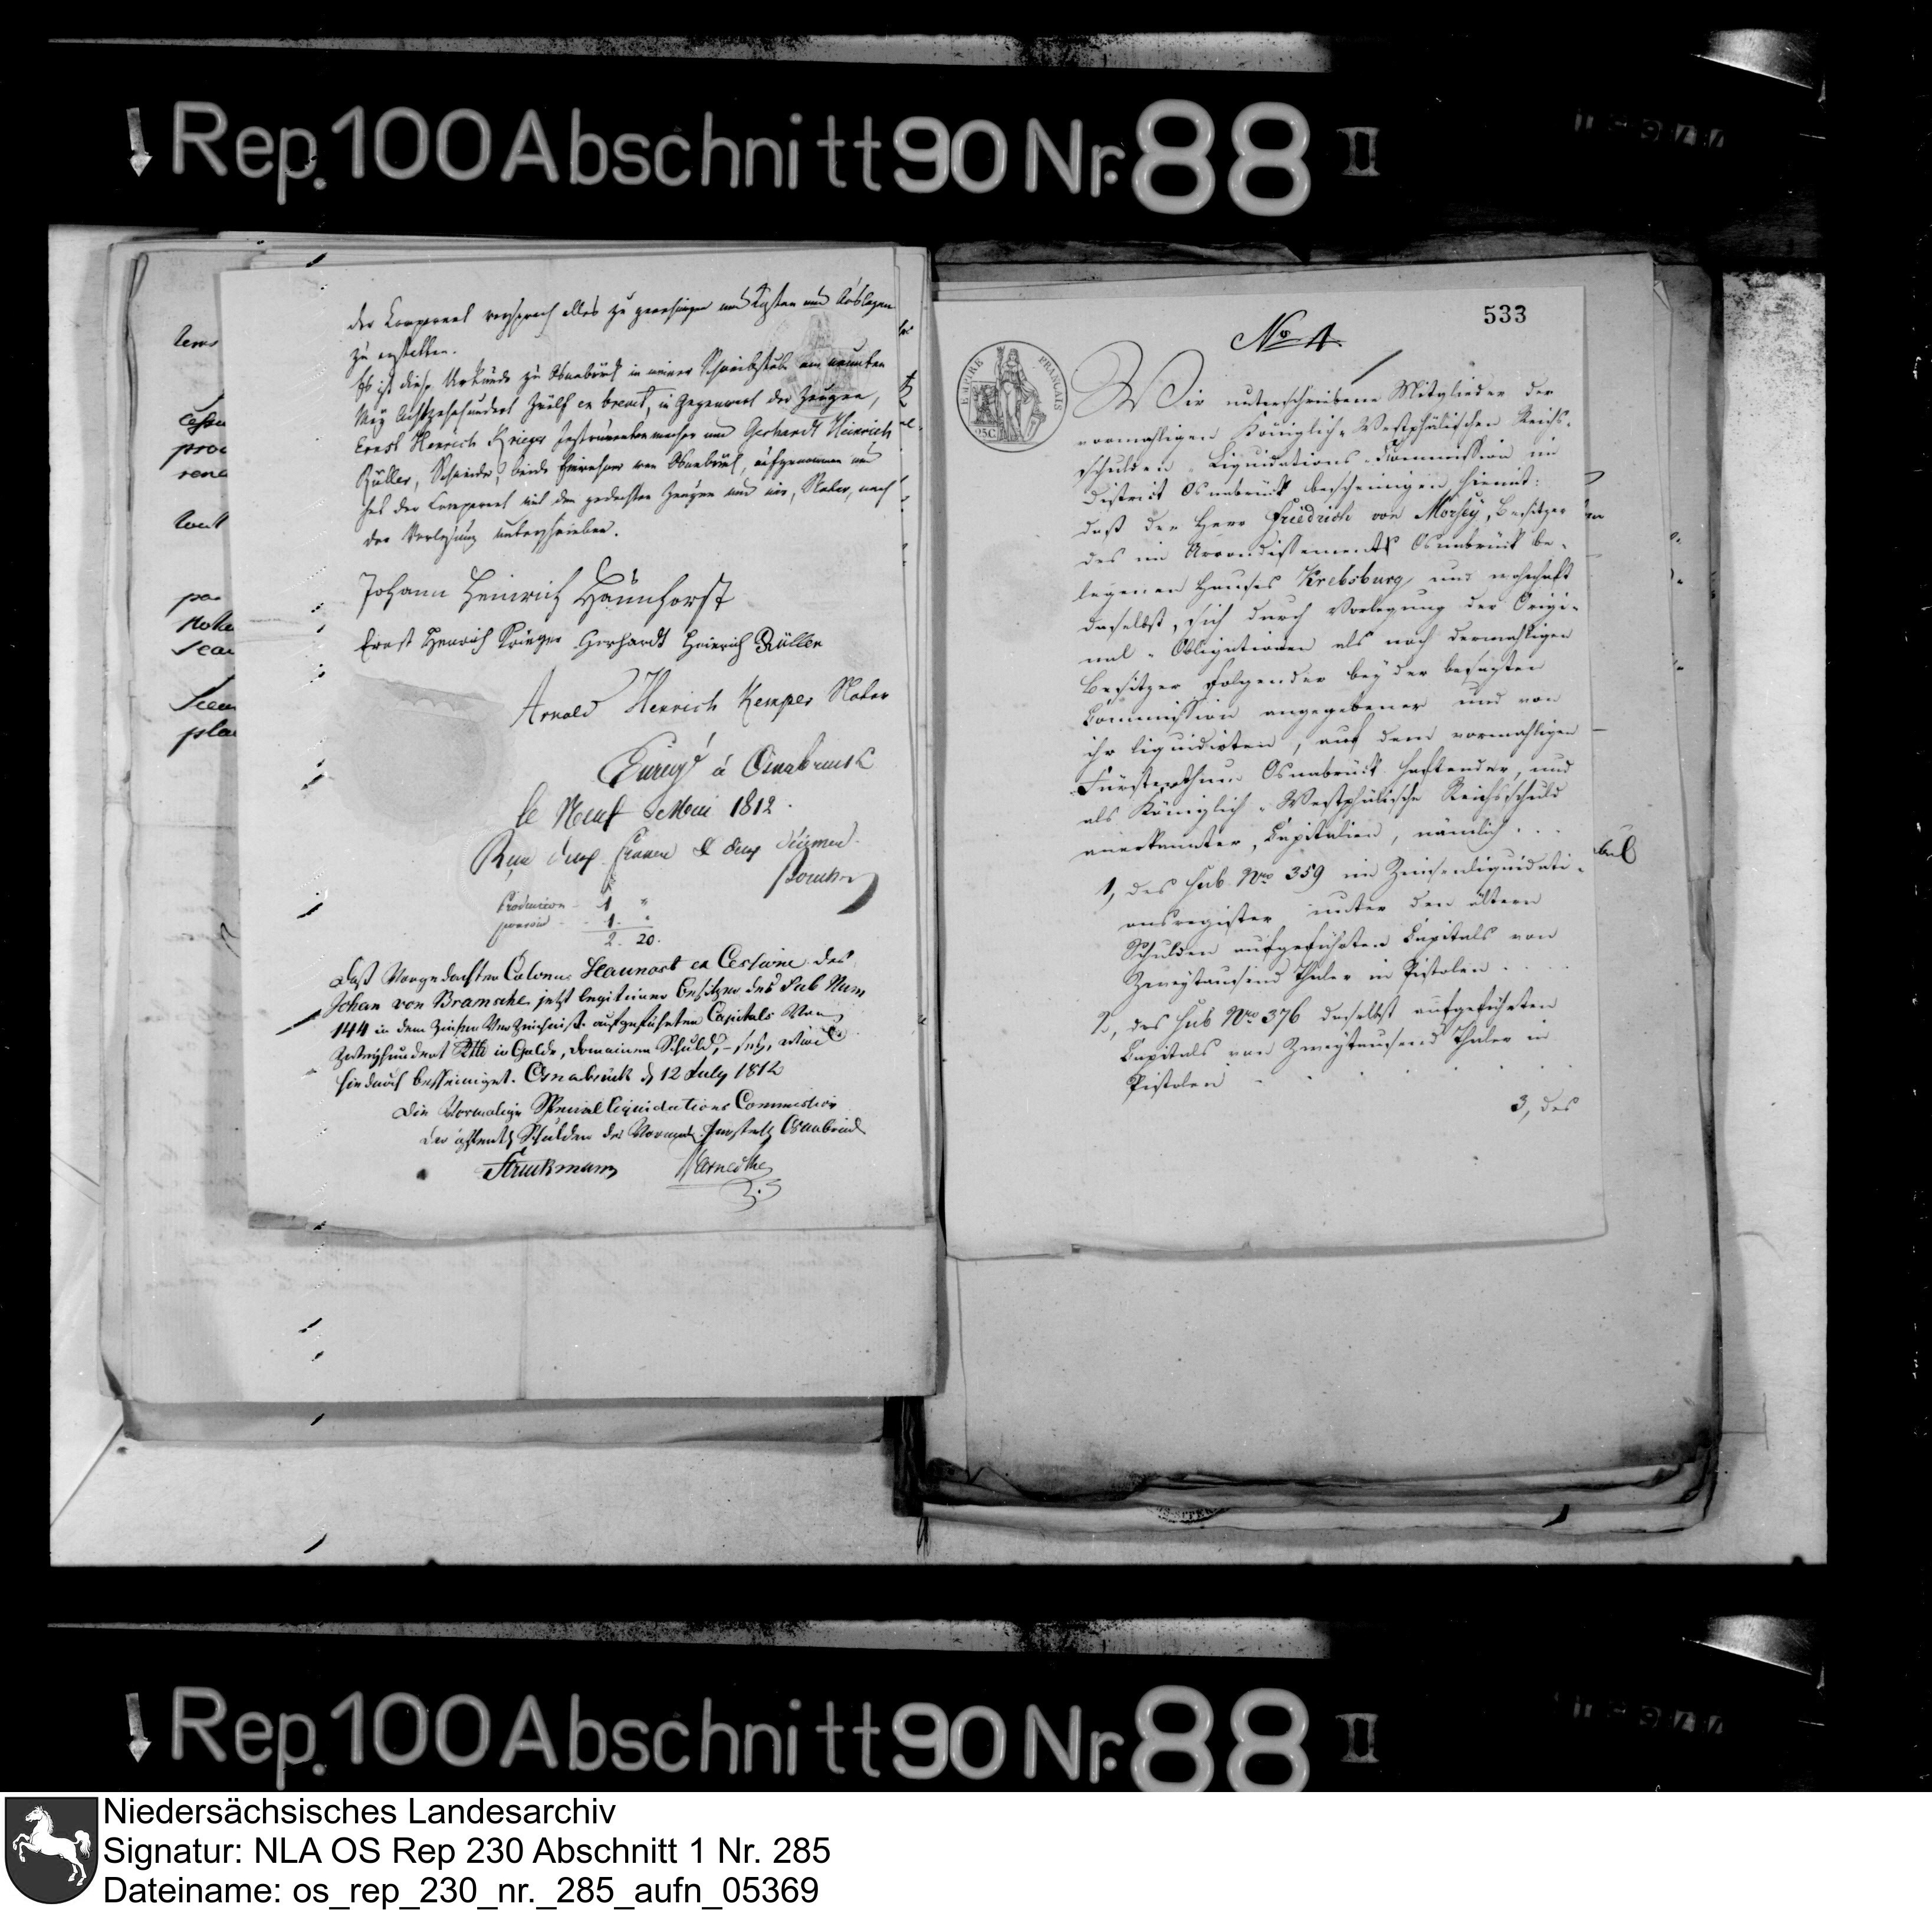 Rep. 100 Abschnitt 90 Nr. 88 II
der Comparent versprach alles zu genehmigen und Kosten und Auslagen
zu erstatten.
Es ist diese Urkunde zu Osnabrück in meiner Schreibstube am neunten
May Achtzehnhundert Zwölf en brevet, in Gegenwart der Zeugen,
Ernst Henrich Krieger Instrumentenmacher und Gerhardt Heinrich
Rüller, Schneider, beide Einwohner von Osnabrück, aufgenommen und
hat der Comparent mit den gedachten Zeugen und mir, Notar, nach
der Vorlesung unterschrieben.
Johann Heinrich Haunhorst
Ernst Henrich Krieger Gerhardt Heinrich Rüller
Arnold Henrich Kemper Notar
Enregé á Osnabruck
le Neuf Mai 1812.
Reçu deux francs & deux décimes
1 "
1. "
2. 20.
Daß Vorgedachter Colonus Haunorst ex Cessione des
Johan von Bramsche jetzt legitimer Besitzer des sub Num
144 in dem Zinsen Verzeichniß aufgeführten Capitals Von
Zweyhundert Rthl in Golde, Domainen Schuld, sey, wird
hiedurch bescheiniget. Osnabrück d 12 July 1812
Die Vormalige Special Liquidations Commission
der öffentl Schulden des Vormal. Fürstenth Osnabrück
Struckmann
533
No 4.
EMPIRE FRANÇAIS
25C
Wir unterschriebene Mitglieder der
vormahligen Königlich-Westphälischen Reichs-
schulden-Liquidations-Commission im
District Osnabrück bescheinigen hiemit:
daß der Herr Friedrich von Morsey, Besitzer
des im Arrondissement Osnabrück be-
legenen Hauses Krebsburg und wohnhaft
daselbst, sich durch Vorlegung der Origi-
nal-Obligationen als noch dermahligen
Besitzer folgender bey der besagten
Commission angegebener und von
ihr liquidirten, auf dem vormahligen
Fürstenthum Osnabrück haftender, und
als Königlich-Westphälische Reichsschuld
anerkannter, Capitalien, nämlich...
1, des sub Nro 359 im Zinsenliquidati-
onsregister unter den ältern
Schulden aufgeführten Capitals von
Zweytausend Thaler in Pistolen....
2, des sub Nro 376 daselbst aufgeführten
Capitals von Zweytausend Thaler in
Pistolen
3, des
Rep. 100 Abschnitt 90 Nr. 88 II
Niedersächsisches Landesarchiv
Signatur: NLA OS Rep 230 Abschnitt 1 Nr. 285
Dateiname: os_rep_230_nr._285_aufn_05369